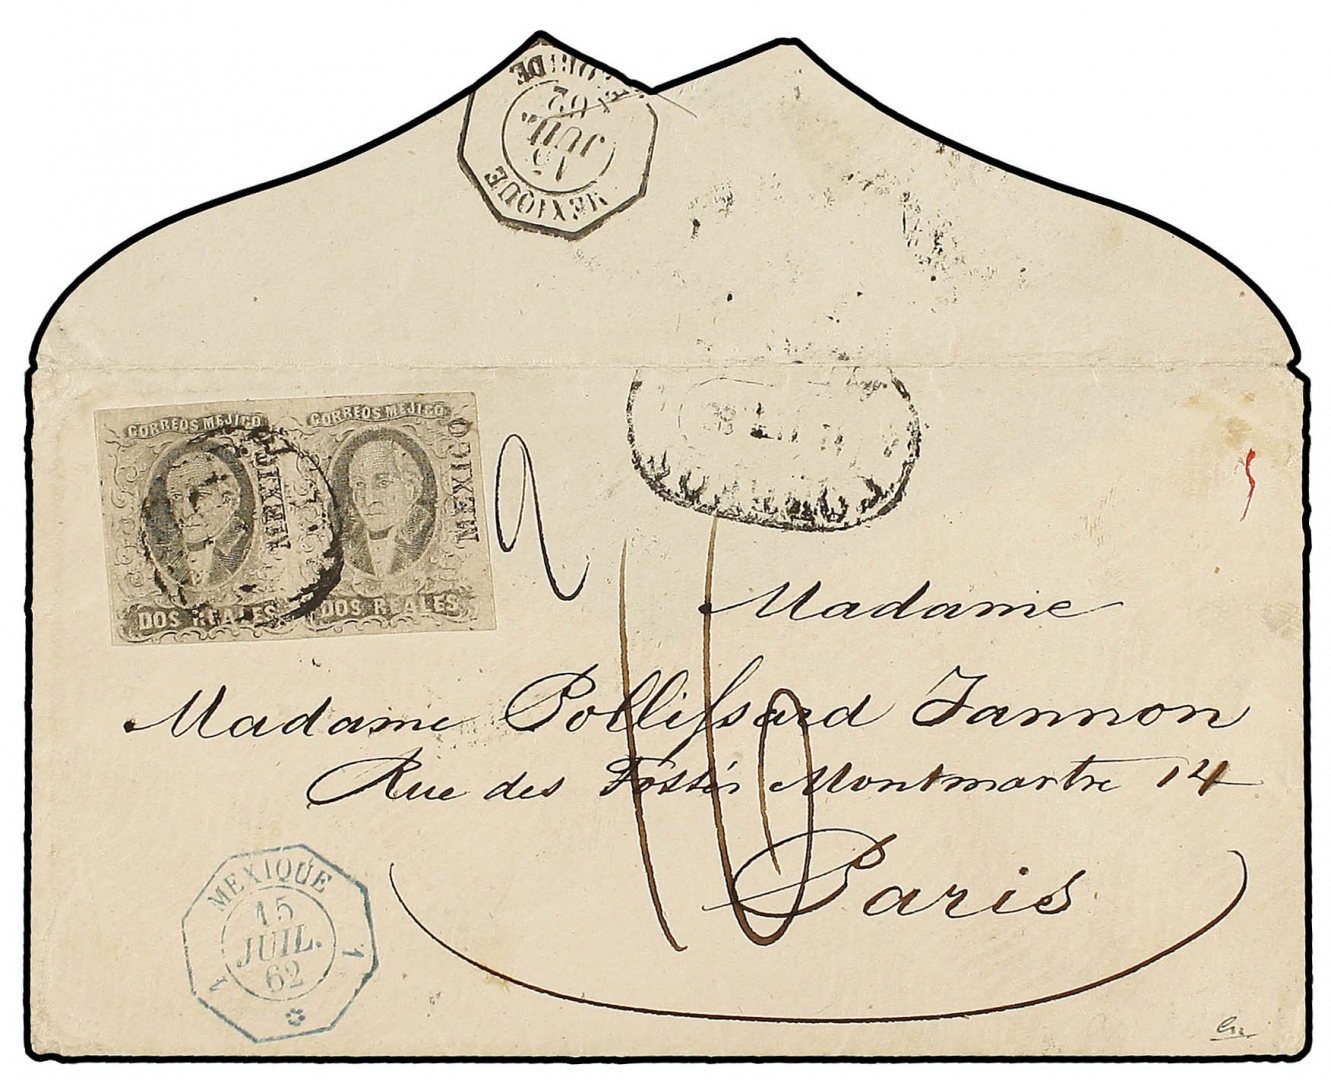 MEXIQUE
15
JUIL.
62
CORREOS MEJICO
MEXICO
DOS REALES
CORREOS MEJICO
MEXICO
DOS REALES
2
16
Madame
Madame Pollissard Jannon
Rue des Fossés Montmartre 14
Paris
MEXIQUE
15
JUIL.
62
1